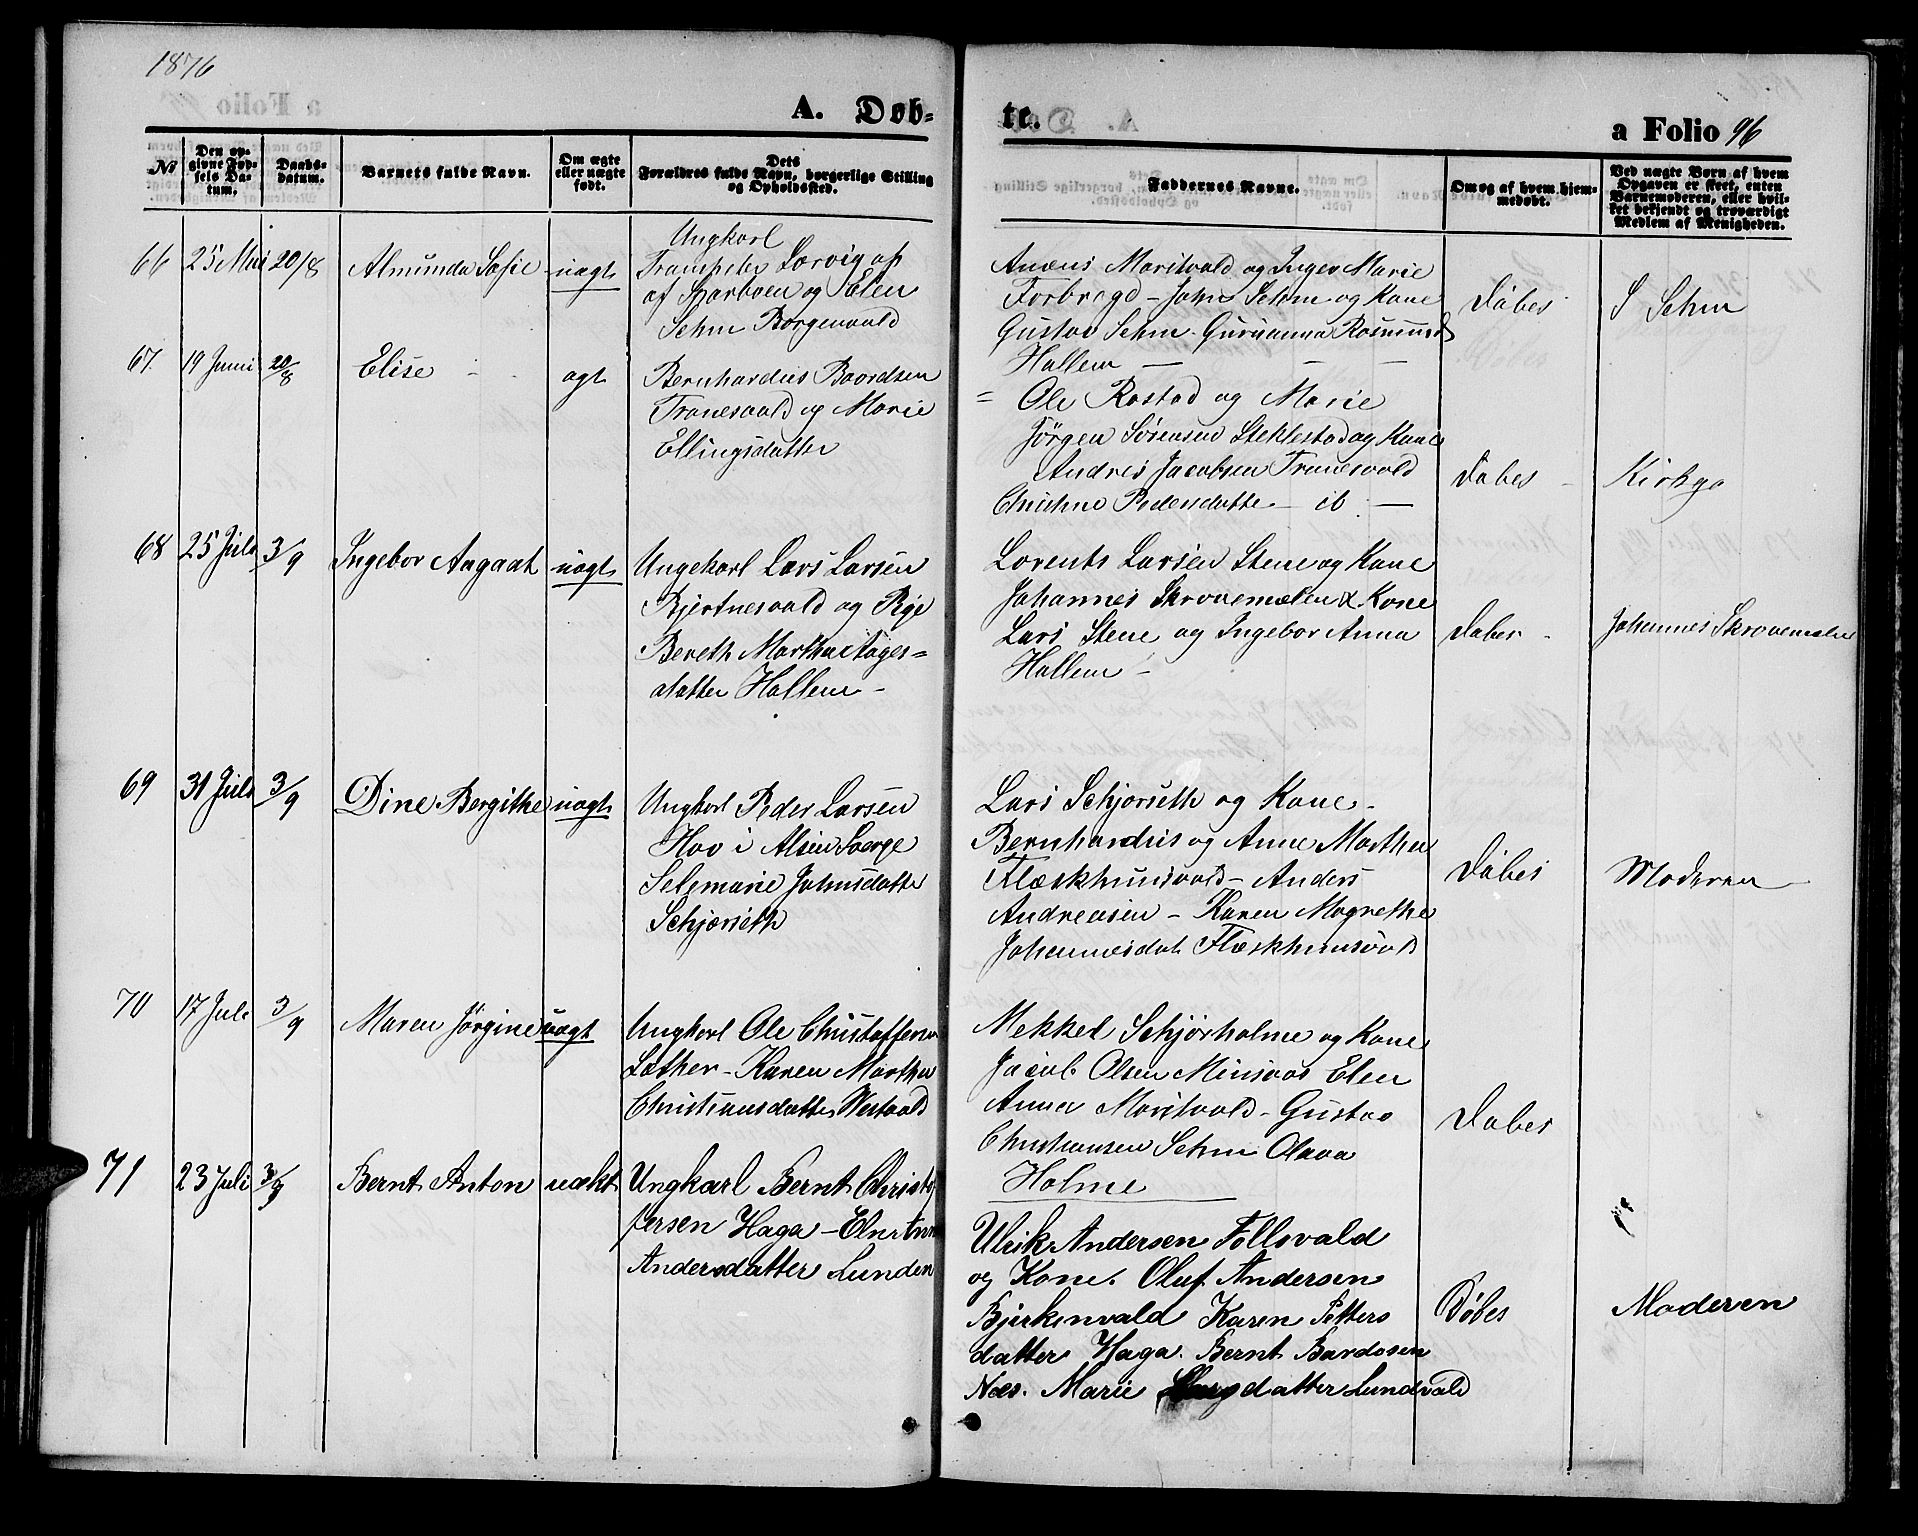 1876
A. Døb-
te.
a Folio 96
№
Den op-
givne Fød-
sels Da-
tum.
Daabs-
datum.
Barnets fulde Navn.
Om ægte
eller uægte
født.
Dets
Forældres fulde Navn, borgerlige Stilling
og Opholdssted.
Faddernes Navne.
Om og af hvem hjem-
medøbt.
Ved uægte Børn af hvem
Opgaven er skeet, enten
Barnemoderen, eller hvil-
ket bekjendt og troværdigt
Medlem af Menigheden.
66 25 Mai 20/8 Almunda Sofie uagt
Ungkarl
Trompeter Lorvig af
af Sparboen og Elen
Sehm Borgenvald
Anæus Moritvald og Inger Marie
Forbregd - John Sehm og Kone
Gustav Sehm - Gurianna Rosmund
Hallem
Døbes
S Sehm
67. 19 Juni 20/8 Elise agt
Bernhardus Baardsen
Tranesvald og Marie
Ellingsdatter
= Ole Rostad og Marie
Jørgen Sørensen Steklestad og Kone
Andreis Jacobsen Tranesvald
Christine Pedersdatter - ib. -
Døbes -
Kirkgo
68 25 Juli 3/9 Ingebor Angaat uagt
Ungekarl Lars Larsen
Bjertnesvald og Pige
Bereth Martha Aages=
datter Hallem -
Lorents Larsen Stene og Kone
Johannes Skrovemælen & Kone
Lars Stene og Ingebor Anna
Hallem -
Døbes -
Johannes Skrovemælen
69 31 Juli 3/9 Dine Bergithe uagt
Ungkarl Peder Larsen
Hov i Alsen Sverge
Selemarie Johnsdatter
Schjørseth
Lars Schjørseth og Kone -
Bernhardus og Anne Martha
Flæskhuusvald - Anders
Andreasen - Karen Magrethe
Johannesdat. Flæskhuusvald
Døbes
Moderen
70 17 Juli 3/9 Maren Jørgine uagt
Ungkarl Ole Christoffersen
Lather - Karen Martha
Christiansdatter Vestvald
Mekkel Schjørholme og Kone
Jacob Olsen Minsaas Elen
Anna Moritvald - Gustav
Christiansen Sehm Olava
Holme
Døbes
71 23 Juli 3/9 Bernt Anton uækt
Ungkarl Bernt Christo
fersen Haga - Elen Anna
Andersdatter Lunden
Ulrik Andersen Follovald
og Kone. Oluf Andersen
Bjirkenvald Karen Petters
datter Haga. Bernt Bardosen
Næs. Marie Larsdatter Lundvald
Døbes
Moderen